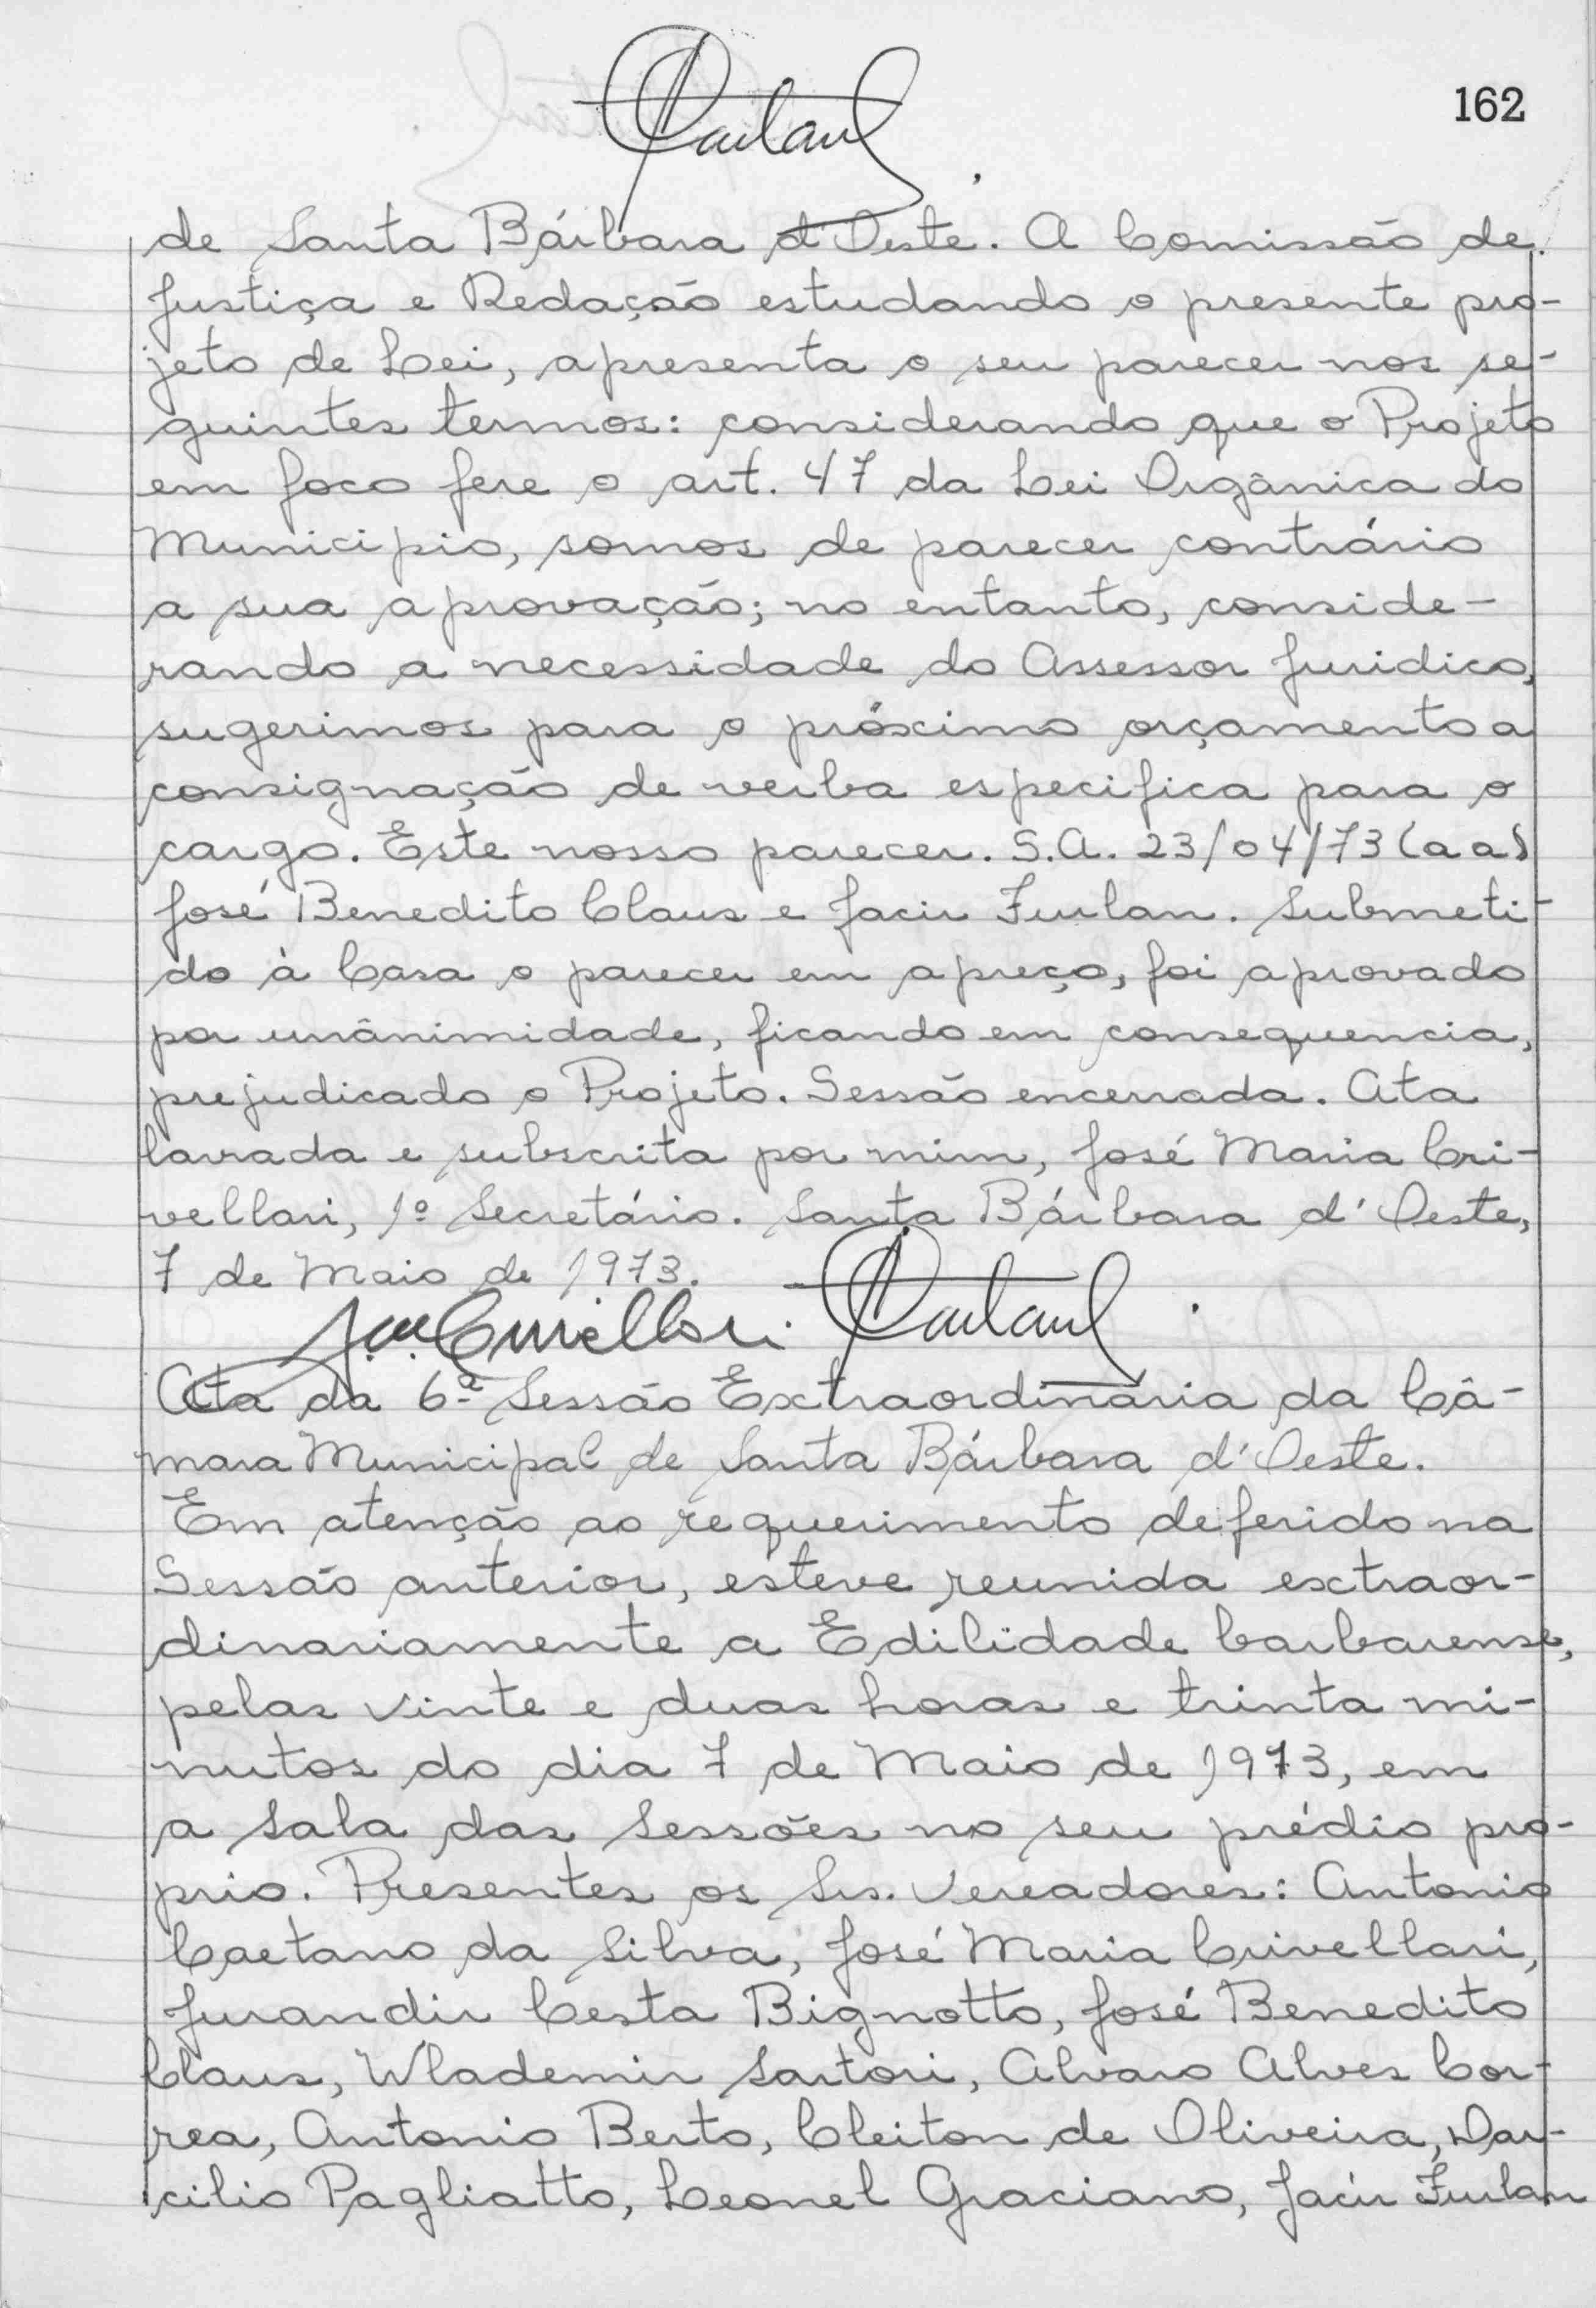 162
de Santa Bárbara d'Oeste. A Comissão de
Justiça e Redação estudando o presente pro-
jeto de Lei, apresenta o seu parecer nos se-
guintes termos: considerando que o Projeto
em foco fere o art. 47 da Lei Orgânica do
Municipio, somos de parecer contrário
a sua aprovação; no entanto, conside-
rando a necessidade do Assessor Juridico,
sugerimos para o próximo orçamento a
consignação de verba especifica para o
cargo. Este nosso parecer. S.A. 23/04/73 (aa)
José Benedito Claus e Jacir Furlan. Submeti-
do à Casa o parecer em apreço, foi aprovado
por unânimidade, ficando em consequencia,
prejudicado o Projeto. Sessão encerrada. Ata
lavrada e subscrita por mim, José Maria Cri-
vellari, 1º Secretário. Santa Bárbara d'Oeste,
7 de Maio de 1973.
Ata da 6ª Sessão Extraordinária da Câ-
mara Municipal de Santa Bárbara d'Oeste.
Em atenção ao requerimento deferido na
Sessão anterior, esteve reunida extraor-
dinariamente a Edilidade barbarense,
pelas vinte e duas horas e trinta mi-
nutos do dia 7 de Maio de 1973, em
a Sala das Sessões no seu prédio pro-
prio. Presentes os Srs. Vereadores: Antonio
Caetano da Silva, José Maria Crivellari,
Jurandir Cesta Bignotto, José Benedito
Claus, Wlademir Sartori, Alvaro Alves Cor-
rea, Antonio Berto, Cleiton de Oliveira, Dar-
cilio Pagliatto, Leonel Graciano, Jacir Furlan